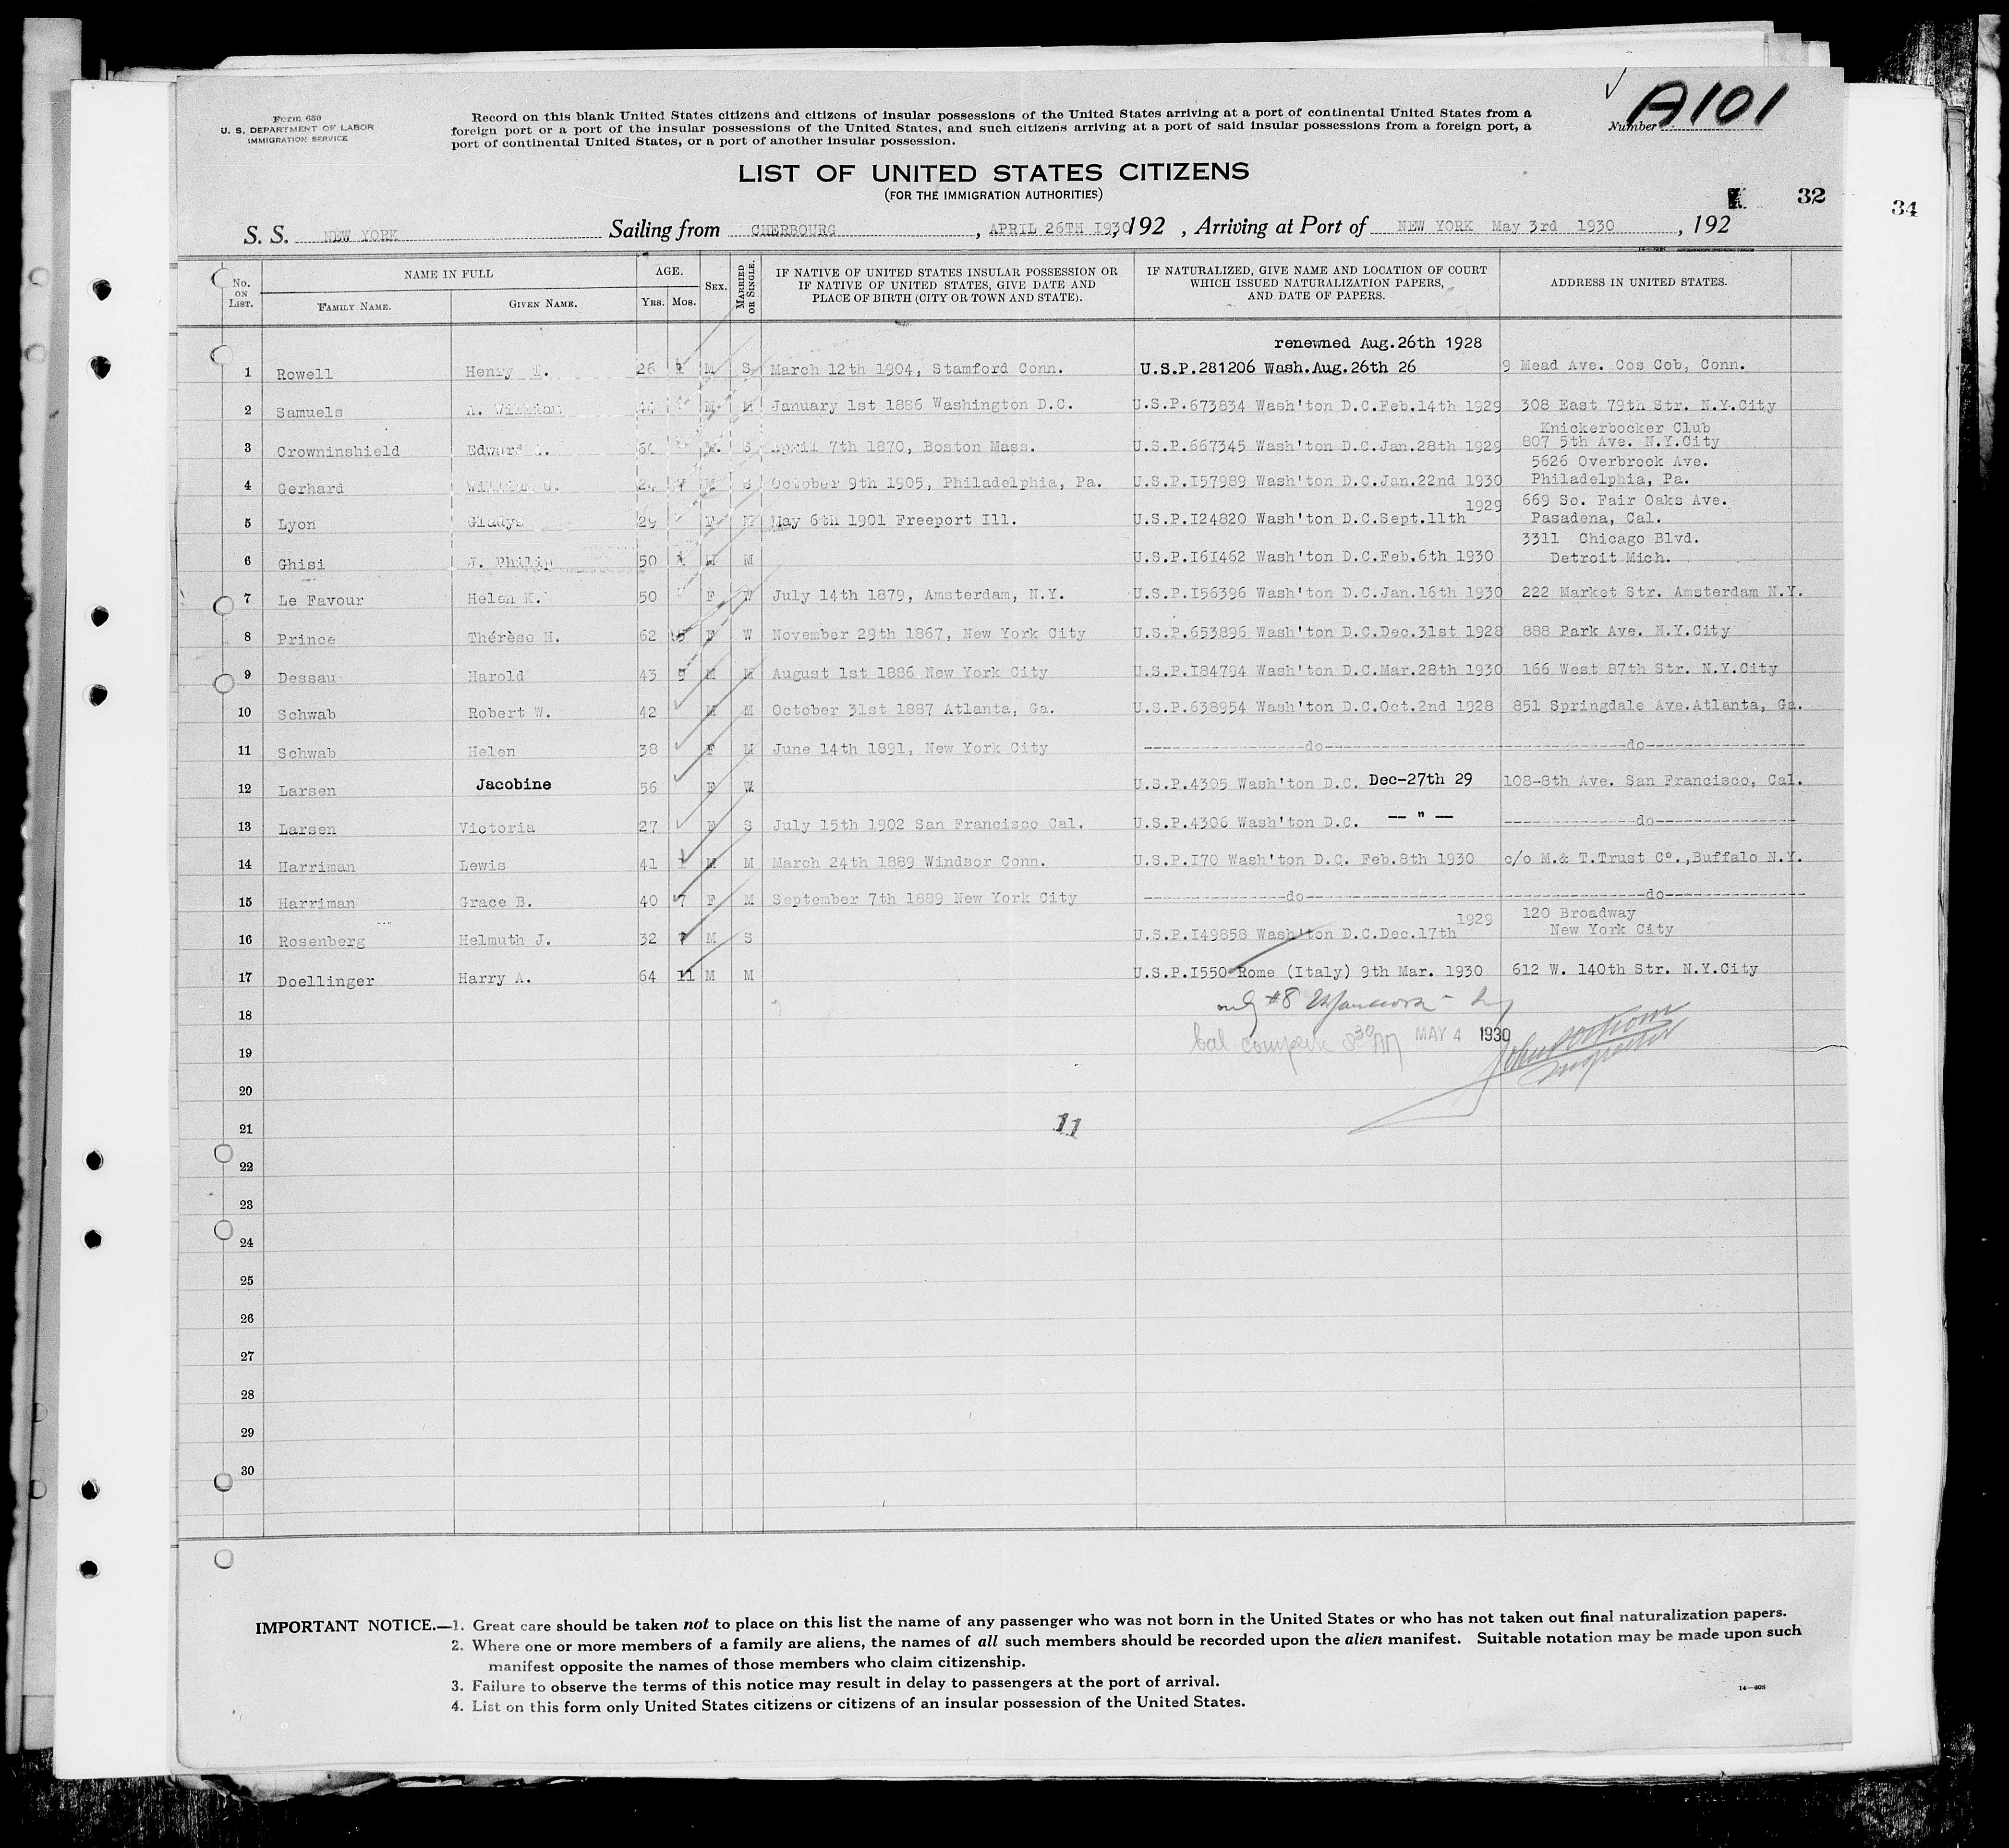 Form 630
U. S. DEPARTMENT OF LABOR
IMMIGRATION SERVICE
Record on this blank United States citizens and citizens of insular possessions of the United States arriving at a port of continental United States from a
foreign port or a port of the insular possessions of the United States, and such citizens arriving at a port of said insular possessions from a foreign port, a
port of continental United States, or a port of another insular possession.
Number A101
LIST OF UNITED STATES CITIZENS
(FOR THE IMMIGRATION AUTHORITIES)
32
34
S. S. NEW YORK Sailing from CHERBOURG , APRIL 26TH I930, 192 , Arriving at Port of NEW YORK May 3rd 1930 , 192
No. ON LIST. NAME IN FULL FAMILY NAME. GIVEN NAME. AGE. YRS. MOS. SEX. MARRIED OR SINGLE. IF NATIVE OF UNITED STATES INSULAR POSSESSION OR IF NATIVE OF UNITED STATES, GIVE DATE AND PLACE OF BIRTH (CITY OR TOWN AND STATE). IF NATURALIZED, GIVE NAME AND LOCATION OF COURT WHICH ISSUED NATURALIZATION PAPERS, AND DATE OF PAPERS. ADDRESS IN UNITED STATES.
renewned Aug.26th 1928
1 Rowell Henry T. 26 1 M S March 12th 1904, Stamford Conn. U.S.P.281206 Wash.Aug.26th 26 9 Mead Ave. Cos Cob, Conn.
2 Samuels A. William 44 M M January 1st 1886 Washington D.C. U.S.P.673834 Wash'ton D.C.Feb.14th 1929 308 East 79th Str. N.Y.City
Knickerbocker Club
3 Crowninshield Edward 60 M. S April 7th 1870, Boston Mass. U.S.P.667345 Wash'ton D.C.Jan.28th 1929 807 5th Ave. N.Y.City
5626 Overbrook Ave.
4 Gerhard William 24 M S October 9th 1905, Philadelphia, Pa. U.S.P.I57989 Wash'ton D.C.Jan.22nd 1930 Philadelphia, Pa.
1929 669 So. Fair Oaks Ave.
5 Lyon Gladys 29 F M May 6th 1901 Freeport Ill. U.S.P.I24820 Wash'ton D.C.Sept.11th Pasadena, Cal.
3311 Chicago Blvd.
6 Ghisi J. Philip 50 M M U.S.P.I6I462 Wash'ton D.C.Feb.6th 1930 Detroit Mich.
7 Le Favour Helen K. 50 F W July 14th 1879, Amsterdam, N.Y. U.S.P.I56396 Wash'ton D.C.Jan.16th 1930 222 Market Str. Amsterdam N.Y.
8 Prince Thérèse H. 62 5 F W November 29th 1867, New York City U.S.P.653896 Wash'ton D.C.Dec.31st 1928 888 Park Ave. N.Y.City
9 Dessau Harold 43 9 M M August 1st 1886 New York City U.S.P.I84794 Wash'ton D.C.Mar.28th 1930 166 West 87th Str. N.Y.City
10 Schwab Robert W. 42 M M October 31st 1887 Atlanta, Ga. U.S.P.638954 Wash'ton D.C.Oct.2nd 1928 851 Springdale Ave.Atlanta, Ga.
11 Schwab Helen 38 F M June 14th 1891, New York City ----do---- ----do----
12 Larsen Jacobine 56 F W U.S.P.4305 Wash'ton D.C. Dec-27th 29 108-8th Ave. San Francisco, Cal.
13 Larsen Victoria 27 F S July 15th 1902 San Francisco Cal. U.S.P.4306 Wash'ton D.C. — " — ----do----
14 Harriman Lewis 41 1 M M March 24th 1889 Windsor Conn. U.S.P.I70 Wash'ton D.C. Feb.8th 1930 c/o M.& T.Trust Cº.,Buffalo N.Y.
15 Harriman Grace B. 40 7 F M September 7th 1889 New York City ----do---- ----do----
1929 120 Broadway
16 Rosenberg Helmuth J. 32 M S U.S.P.I49858 Wash'ton D.C.Dec.17th New York City
17 Doellinger Harry A. 64 11 M M U.S.P.I550 Rome (Italy) 9th Mar. 1930 612 W. 140th Str. N.Y.City
18 only #8
19 bal complete 8 30 AM MAY 4 1930 Inspector
20
21 11
22
23
24
25
26
27
28
29
30
IMPORTANT NOTICE.—1. Great care should be taken not to place on this list the name of any passenger who was not born in the United States or who has not taken out final naturalization papers.
2. Where one or more members of a family are aliens, the names of all such members should be recorded upon the alien manifest. Suitable notation may be made upon such
manifest opposite the names of those members who claim citizenship.
3. Failure to observe the terms of this notice may result in delay to passengers at the port of arrival.
4. List on this form only United States citizens or citizens of an insular possession of the United States.
14—608